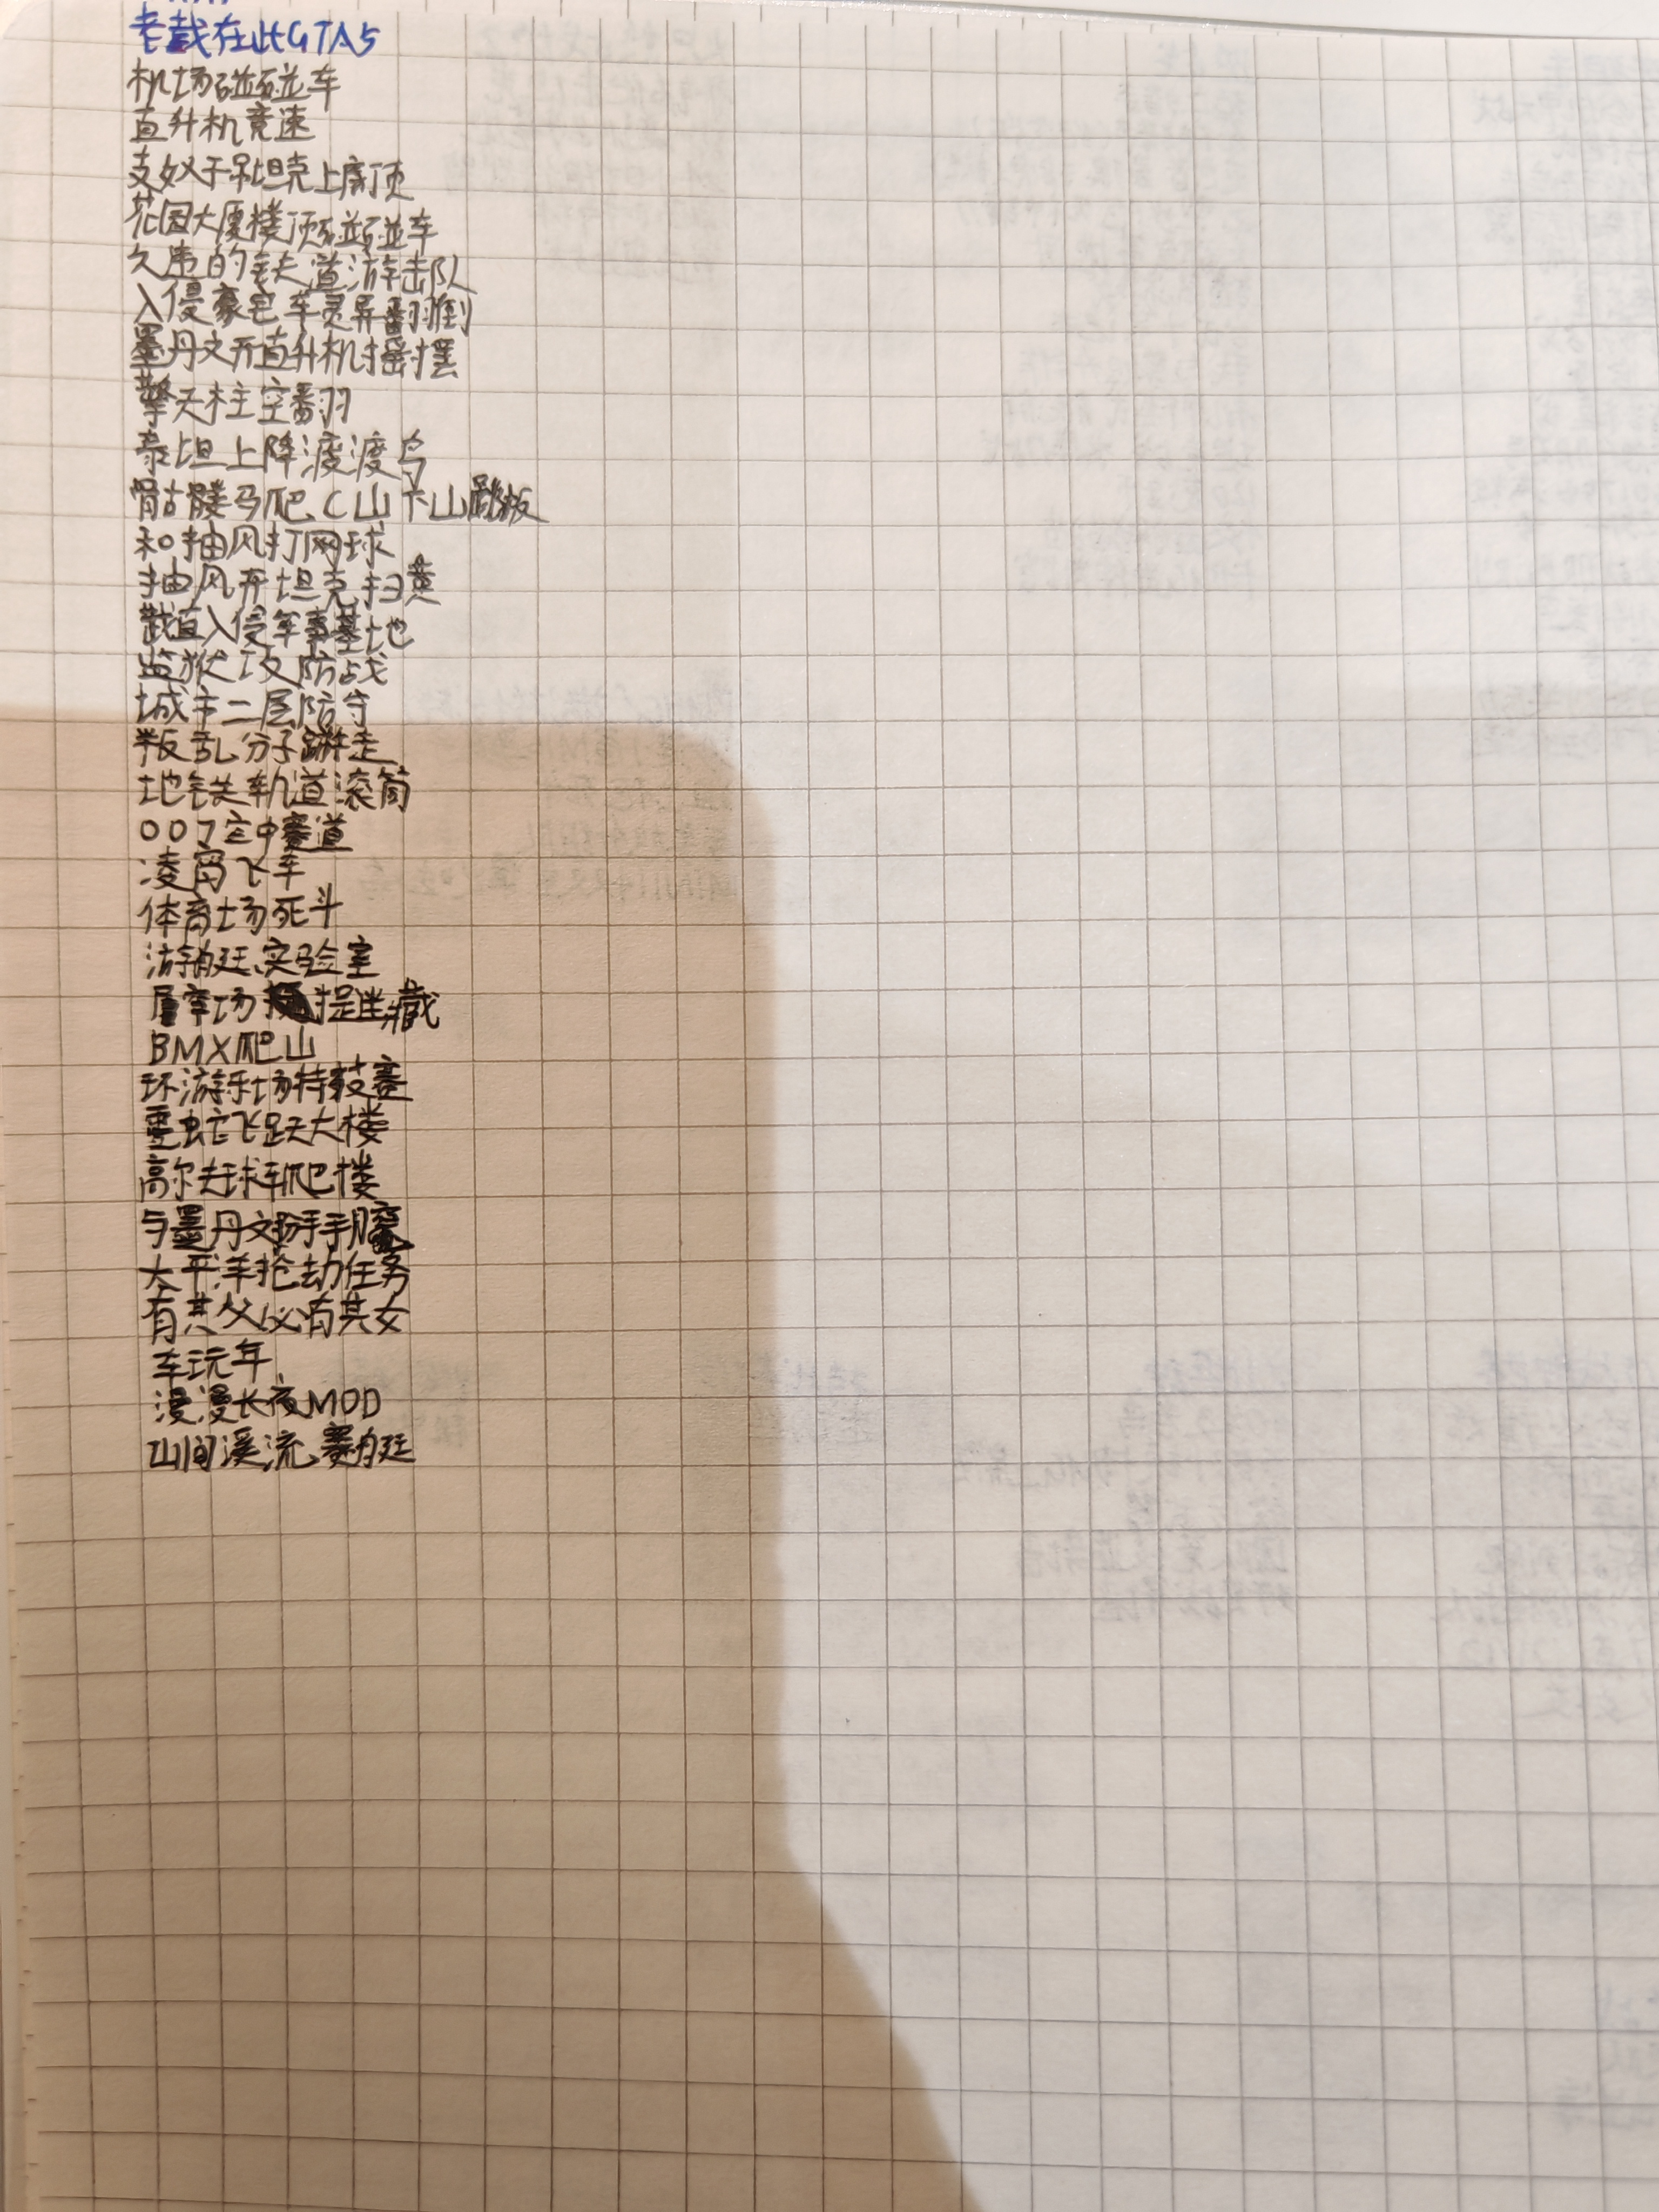 老戴在此GTA5
机场碰碰车
直升机竞速
支奴干吊坦克上房顶
花园大厦楼顶碰碰车
久违的铁道游击队
入侵豪宅车灵异翻倒
墨丹文开直升机摇摆
擎天柱空翻
豪坦上降渡渡鸟
骷髅马爬C山下山跳板
和抽风打网球
抽风开坦克扫黄
戴直入侵军事基地
监狱攻防战
城市二层防守
叛乱分子蹦走
地铁轨道滚筒
007空中赛道
凌霄飞车
体育场死斗
游艇实验室
屠宰场捉迷藏
BMX爬山
环游乐场特技赛
雪蛇飞跃大楼
高尔夫球车爬楼
与墨丹文扮手手腕
太平洋抢劫任务
有其父必有其女
车玩年
漫漫长夜MOD
山间溪流赛艇